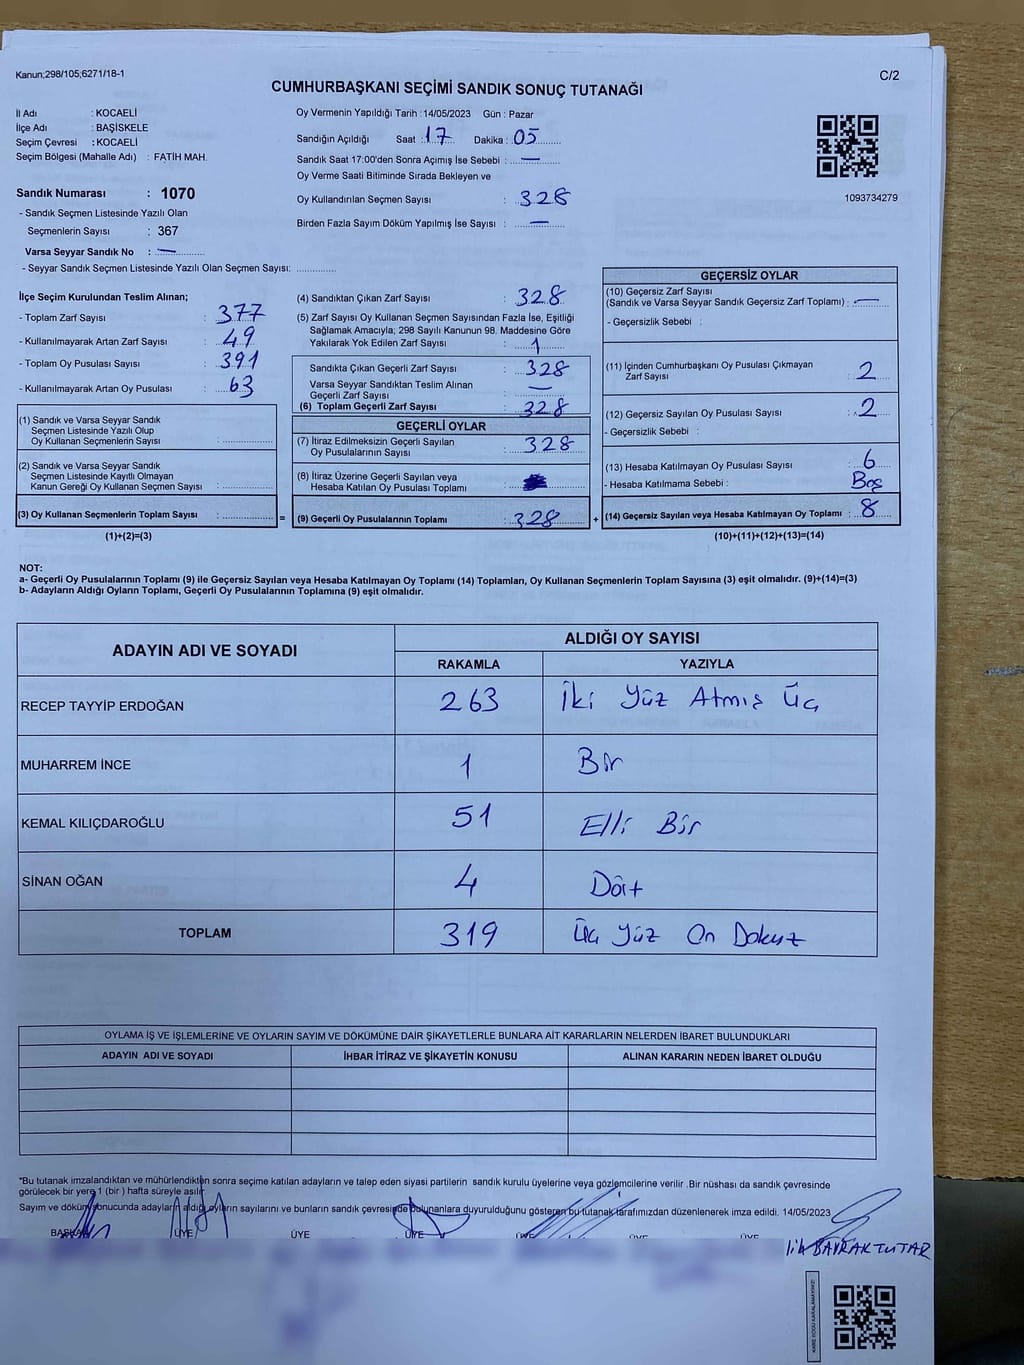 Kanun;298/105;6271/18-1
C/2
CUMHURBAŞKANI SEÇİMİ SANDIK SONUÇ TUTANAĞI
İl Adı : KOCAELİ
İlçe Adı : BAŞİSKELE
Seçim Çevresi : KOCAELİ
Seçim Bölgesi (Mahalle Adı) : FATİH MAH.
Sandık Numarası : 1070
- Sandık Seçmen Listesinde Yazılı Olan
Seçmenlerin Sayısı : 367
Varsa Seyyar Sandık No : —
- Seyyar Sandık Seçmen Listesinde Yazılı Olan Seçmen Sayısı: ............
Oy Vermenin Yapıldığı Tarih : 14/05/2023 Gün : Pazar
Sandığın Açıldığı Saat : 17 Dakika : 05
Sandık Saat 17:00'den Sonra Açımış İse Sebebi : —
Oy Verme Saati Bitiminde Sırada Bekleyen ve
Oy Kullandırılan Seçmen Sayısı : 328
Birden Fazla Sayım Döküm Yapılmış İse Sayısı : —
1093734279
İlçe Seçim Kurulundan Teslim Alınan;
- Toplam Zarf Sayısı : 377
- Kullanılmayarak Artan Zarf Sayısı : 49
- Toplam Oy Pusulası Sayısı : 391
- Kullanılmayarak Artan Oy Pusulası : 63
(1) Sandık ve Varsa Seyyar Sandık
Seçmen Listesinde Yazılı Olup
Oy Kullanan Seçmenlerin Sayısı : ............
(2) Sandık ve Varsa Seyyar Sandık
Seçmen Listesinde Kayıtlı Olmayan
Kanun Gereği Oy Kullanan Seçmen Sayısı : ............
(3) Oy Kullanan Seçmenlerin Toplam Sayısı : ............
(1)+(2)=(3)
=
(4) Sandıktan Çıkan Zarf Sayısı : 328
(5) Zarf Sayısı Oy Kullanan Seçmen Sayısından Fazla İse, Eşitliği
Sağlamak Amacıyla; 298 Sayılı Kanunun 98. Maddesine Göre
Yakılarak Yok Edilen Zarf Sayısı : 1
Sandıkta Çıkan Geçerli Zarf Sayısı : 328
Varsa Seyyar Sandıktan Teslim Alınan
Geçerli Zarf Sayısı : —
(6) Toplam Geçerli Zarf Sayısı : 328
GEÇERLİ OYLAR
(7) İtiraz Edilmeksizin Geçerli Sayılan
Oy Pusulalarının Sayısı : 328
(8) İtiraz Üzerine Geçerli Sayılan veya
Hesaba Katılan Oy Pusulası Toplamı :
(9) Geçerli Oy Pusulalarının Toplamı : 328
+
GEÇERSİZ OYLAR
(10) Geçersiz Zarf Sayısı
(Sandık ve Varsa Seyyar Sandık Geçersiz Zarf Toplamı) : —
- Geçersizlik Sebebi :
(11) İçinden Cumhurbaşkanı Oy Pusulası Çıkmayan
Zarf Sayısı : 2
(12) Geçersiz Sayılan Oy Pusulası Sayısı : 2
- Geçersizlik Sebebi :
(13) Hesaba Katılmayan Oy Pusulası Sayısı : 6
- Hesaba Katılmama Sebebi : Boş
(14) Geçersiz Sayılan veya Hesaba Katılmayan Oy Toplamı : 8
(10)+(11)+(12)+(13)=(14)
NOT:
a- Geçerli Oy Pusulalarının Toplamı (9) ile Geçersiz Sayılan veya Hesaba Katılmayan Oy Toplamı (14) Toplamları, Oy Kullanan Seçmenlerin Toplam Sayısına (3) eşit olmalıdır. (9)+(14)=(3)
b- Adayların Aldığı Oyların Toplamı, Geçerli Oy Pusulalarının Toplamına (9) eşit olmalıdır.
ADAYIN ADI VE SOYADI ALDIĞI OY SAYISI
RAKAMLA YAZIYLA
RECEP TAYYİP ERDOĞAN 263 İki Yüz Atmış Üç
MUHARREM İNCE 1 Bir
KEMAL KILIÇDAROĞLU 51 Elli Bir
SİNAN OĞAN 4 Dört
TOPLAM 319 Üç Yüz On Dokuz
OYLAMA İŞ VE İŞLEMLERİNE VE OYLARIN SAYIM VE DÖKÜMÜNE DAİR ŞİKAYETLERLE BUNLARA AİT KARARLARIN NELERDEN İBARET BULUNDUKLARI
ADAYIN ADI VE SOYADI İHBAR İTİRAZ VE ŞİKAYETİN KONUSU ALINAN KARARIN NEDEN İBARET OLDUĞU
*Bu tutanak imzalandıktan ve mühürlendikten sonra seçime katılan adayların ve talep eden siyasi partilerin sandık kurulu üyelerine veya gözlemcilerine verilir .Bir nüshası da sandık çevresinde
görülecek bir yere 1 (bir ) hafta süreyle asılır.
Sayım ve döküm sonucunda adayların aldığı oyların sayılarını ve bunların sandık çevresinde bulunanlara duyurulduğunu gösteren bu tutanak tarafımızdan düzenlenerek imza edildi. 14/05/2023
BAŞKAN ÜYE ÜYE ÜYE ÜYE ÜYE ÜYE
BAYRAKTUTAR